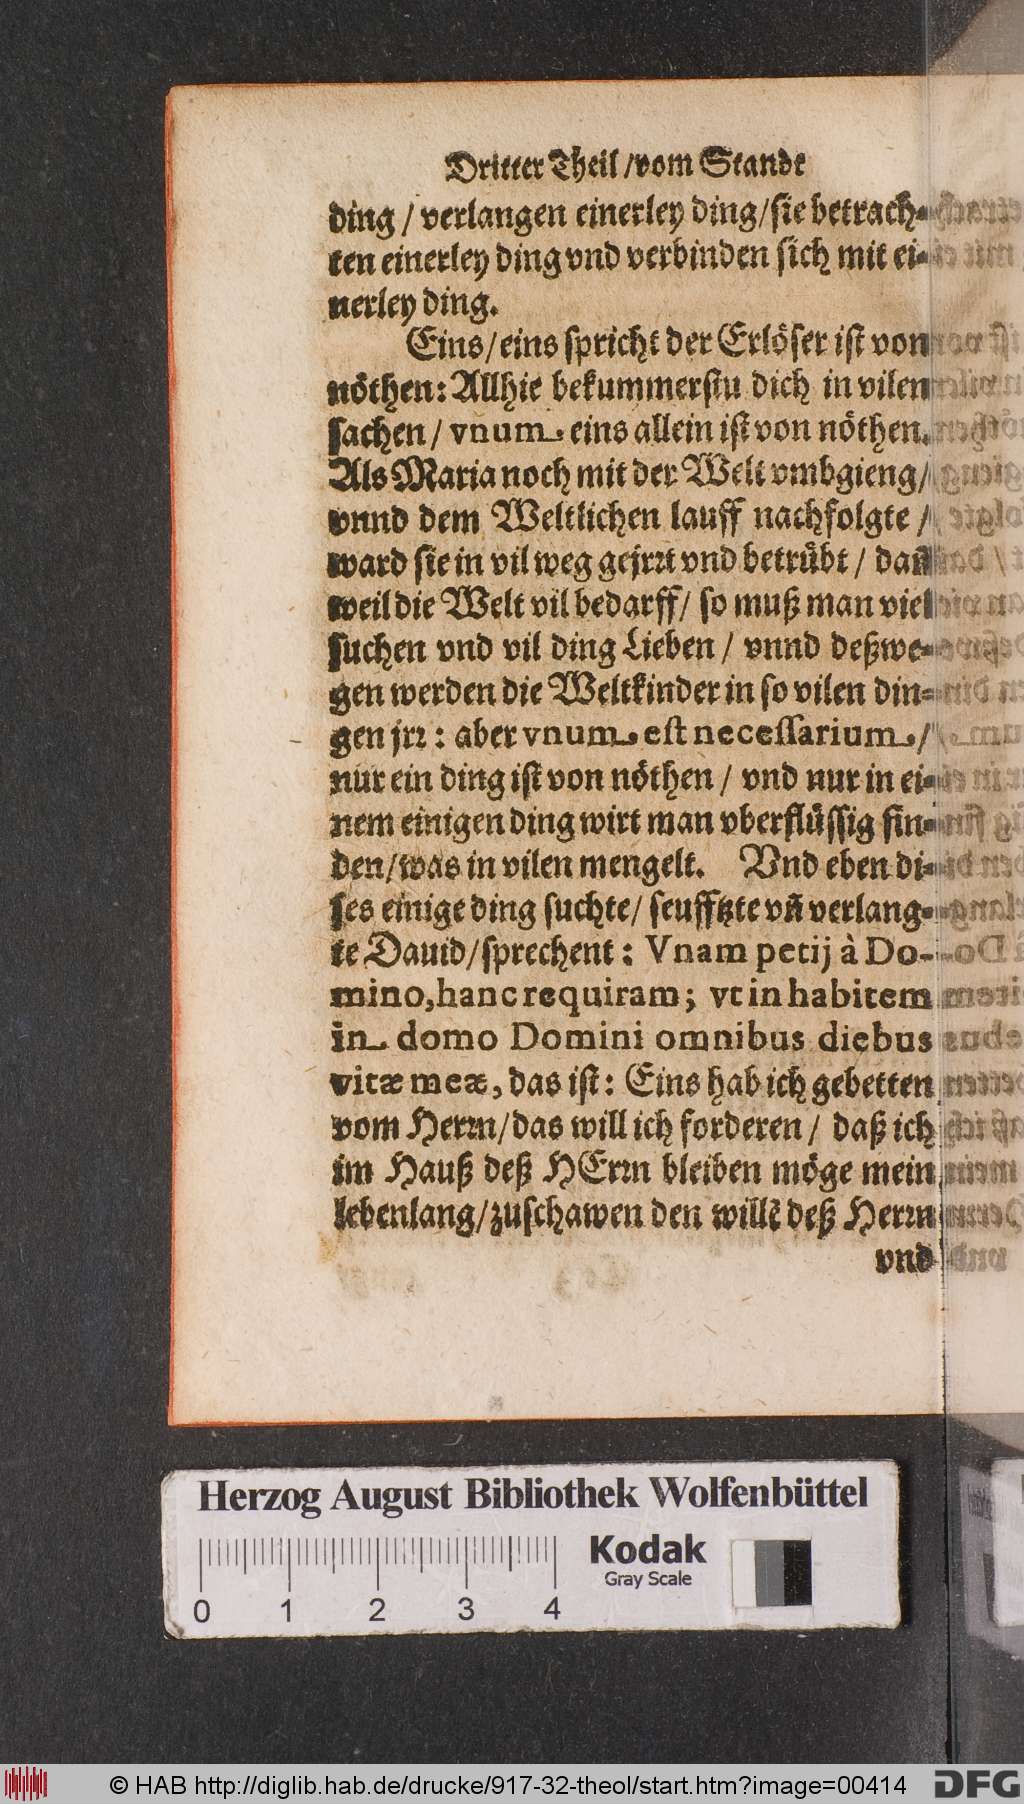 Dritter Theil / vom Standt
ding / verlangen einerley ding / sie betrach-
ten einerley ding vnd verbinden sich mit ei-
nerley ding.
Eins / eins spricht der Erlöser ist von
nöthen: Allhie bekummerstu dich in vilen
sachen / vnum eins allein ist von nöthen.
Als Maria noch mit der Welt vmbgieng /
vnnd dem Weltlichen lauff nachfolgte /
ward sie in vil weg gejrrt vnd betrübt / dañ
weil die Welt vil bedarff / so muß man viel
suchen vnd vil ding Lieben / vnnd deßwe-
gen werden die Weltkinder in so vilen din-
gen jrr: aber vnum est necessarium /
nur ein ding ist von nöthen / vnd nur in ei-
nem einigen ding wirt man vberflüssig fin-
den / was in vilen mengelt. Vnd eben di-
ses einige ding suchte / seufftzte vñ verlang-
te Dauid / sprechent: Vnam petij à Do-
mino, hanc requiram; vt inhabitem
in domo Domini omnibus diebus
vitæ meæ, das ist: Eins hab ich gebetten
vom Herrn / das will ich forderen / daß ich
im Hauß deß HErrn bleiben möge mein
lebenlang / zuschawen den willẽ deß Herrn
vnd
Herzog August Bibliothek Wolfenbüttel
Kodak
Gray Scale
0 1 2 3 4
© HAB http://diglib.hab.de/drucke/917-32-theol/start.htm?image=00414
DFG